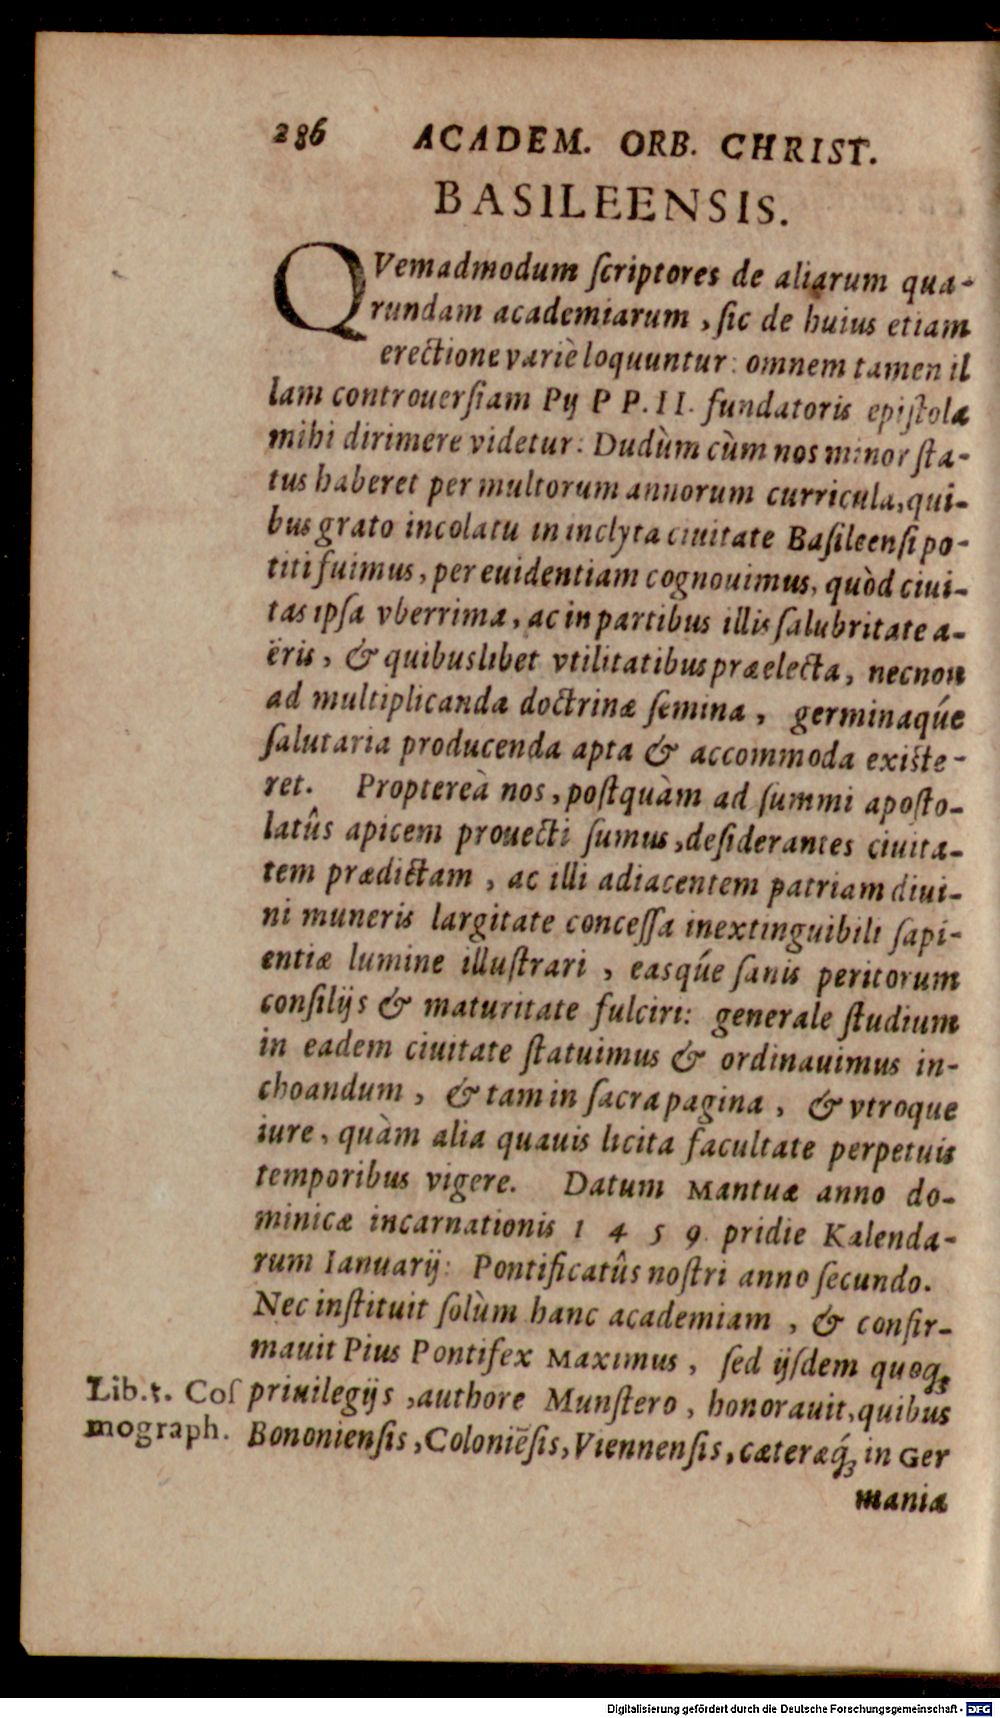 286 ACADEM. ORB. CHRIST.
BASILEENSIS.
QVemadmodum ſcriptores de aliarum qua-
rundam academiarum, ſic de huius etiam
erectione variè loquuntur: omnem tamen il
lam controuerſiam Pij P P. II. fundatoris epiſtola
mihi dirimere videtur: Dudùm cùm nos minor ſta-
tus haberet per multorum annorum curricula, qui-
bus grato incolatu in inclyta ciuitate Baſileenſi po-
titi fuimus, per euidentiam cognouimus, quòd ciui-
tas ipſa vberrima, ac in partibus illis ſalubritate a-
ëris, & quibuslibet vtilitatibus præelecta, necnon
ad multiplicanda doctrinæ ſemina, germinaqúe
ſalutaria producenda apta & accommoda exiſte-
ret. Propterea nos, poſtquàm ad ſummi apoſto-
latûs apicem prouecti ſumus, deſiderantes ciuita-
tem prædictam, ac illi adiacentem patriam diui-
ni muneris largitate conceſſa inextinguibili ſapi-
entiæ lumine illuſtrari, easqúe ſanis peritorum
conſilijs & maturitate fulciri: generale ſtudium
in eadem ciuitate ſtatuimus & ordinauimus in-
choandum, & tam in ſacra pagina, & vtroque
iure, quàm alia quauis licita facultate perpetuis
temporibus vigere. Datum Mantuæ anno do-
minicæ incarnationis 1 4 5 9. pridie Kalenda-
rum Ianuarij: Pontificatûs noſtri anno ſecundo.
Nec inſtituit ſolùm hanc academiam, & confir-
mauit Pius Pontifex Maximus, ſed ijſdem quoq;
priuilegijs, authore Munſtero, honorauit, quibus
Bononienſis, Coloniēſis, Viennenſis, cæteræq́; in Ger
maniæ
Lib. 5. Coſ
mograph.
Digitalisierung gefördert durch die Deutsche Forschungsgemeinschaft - DFG